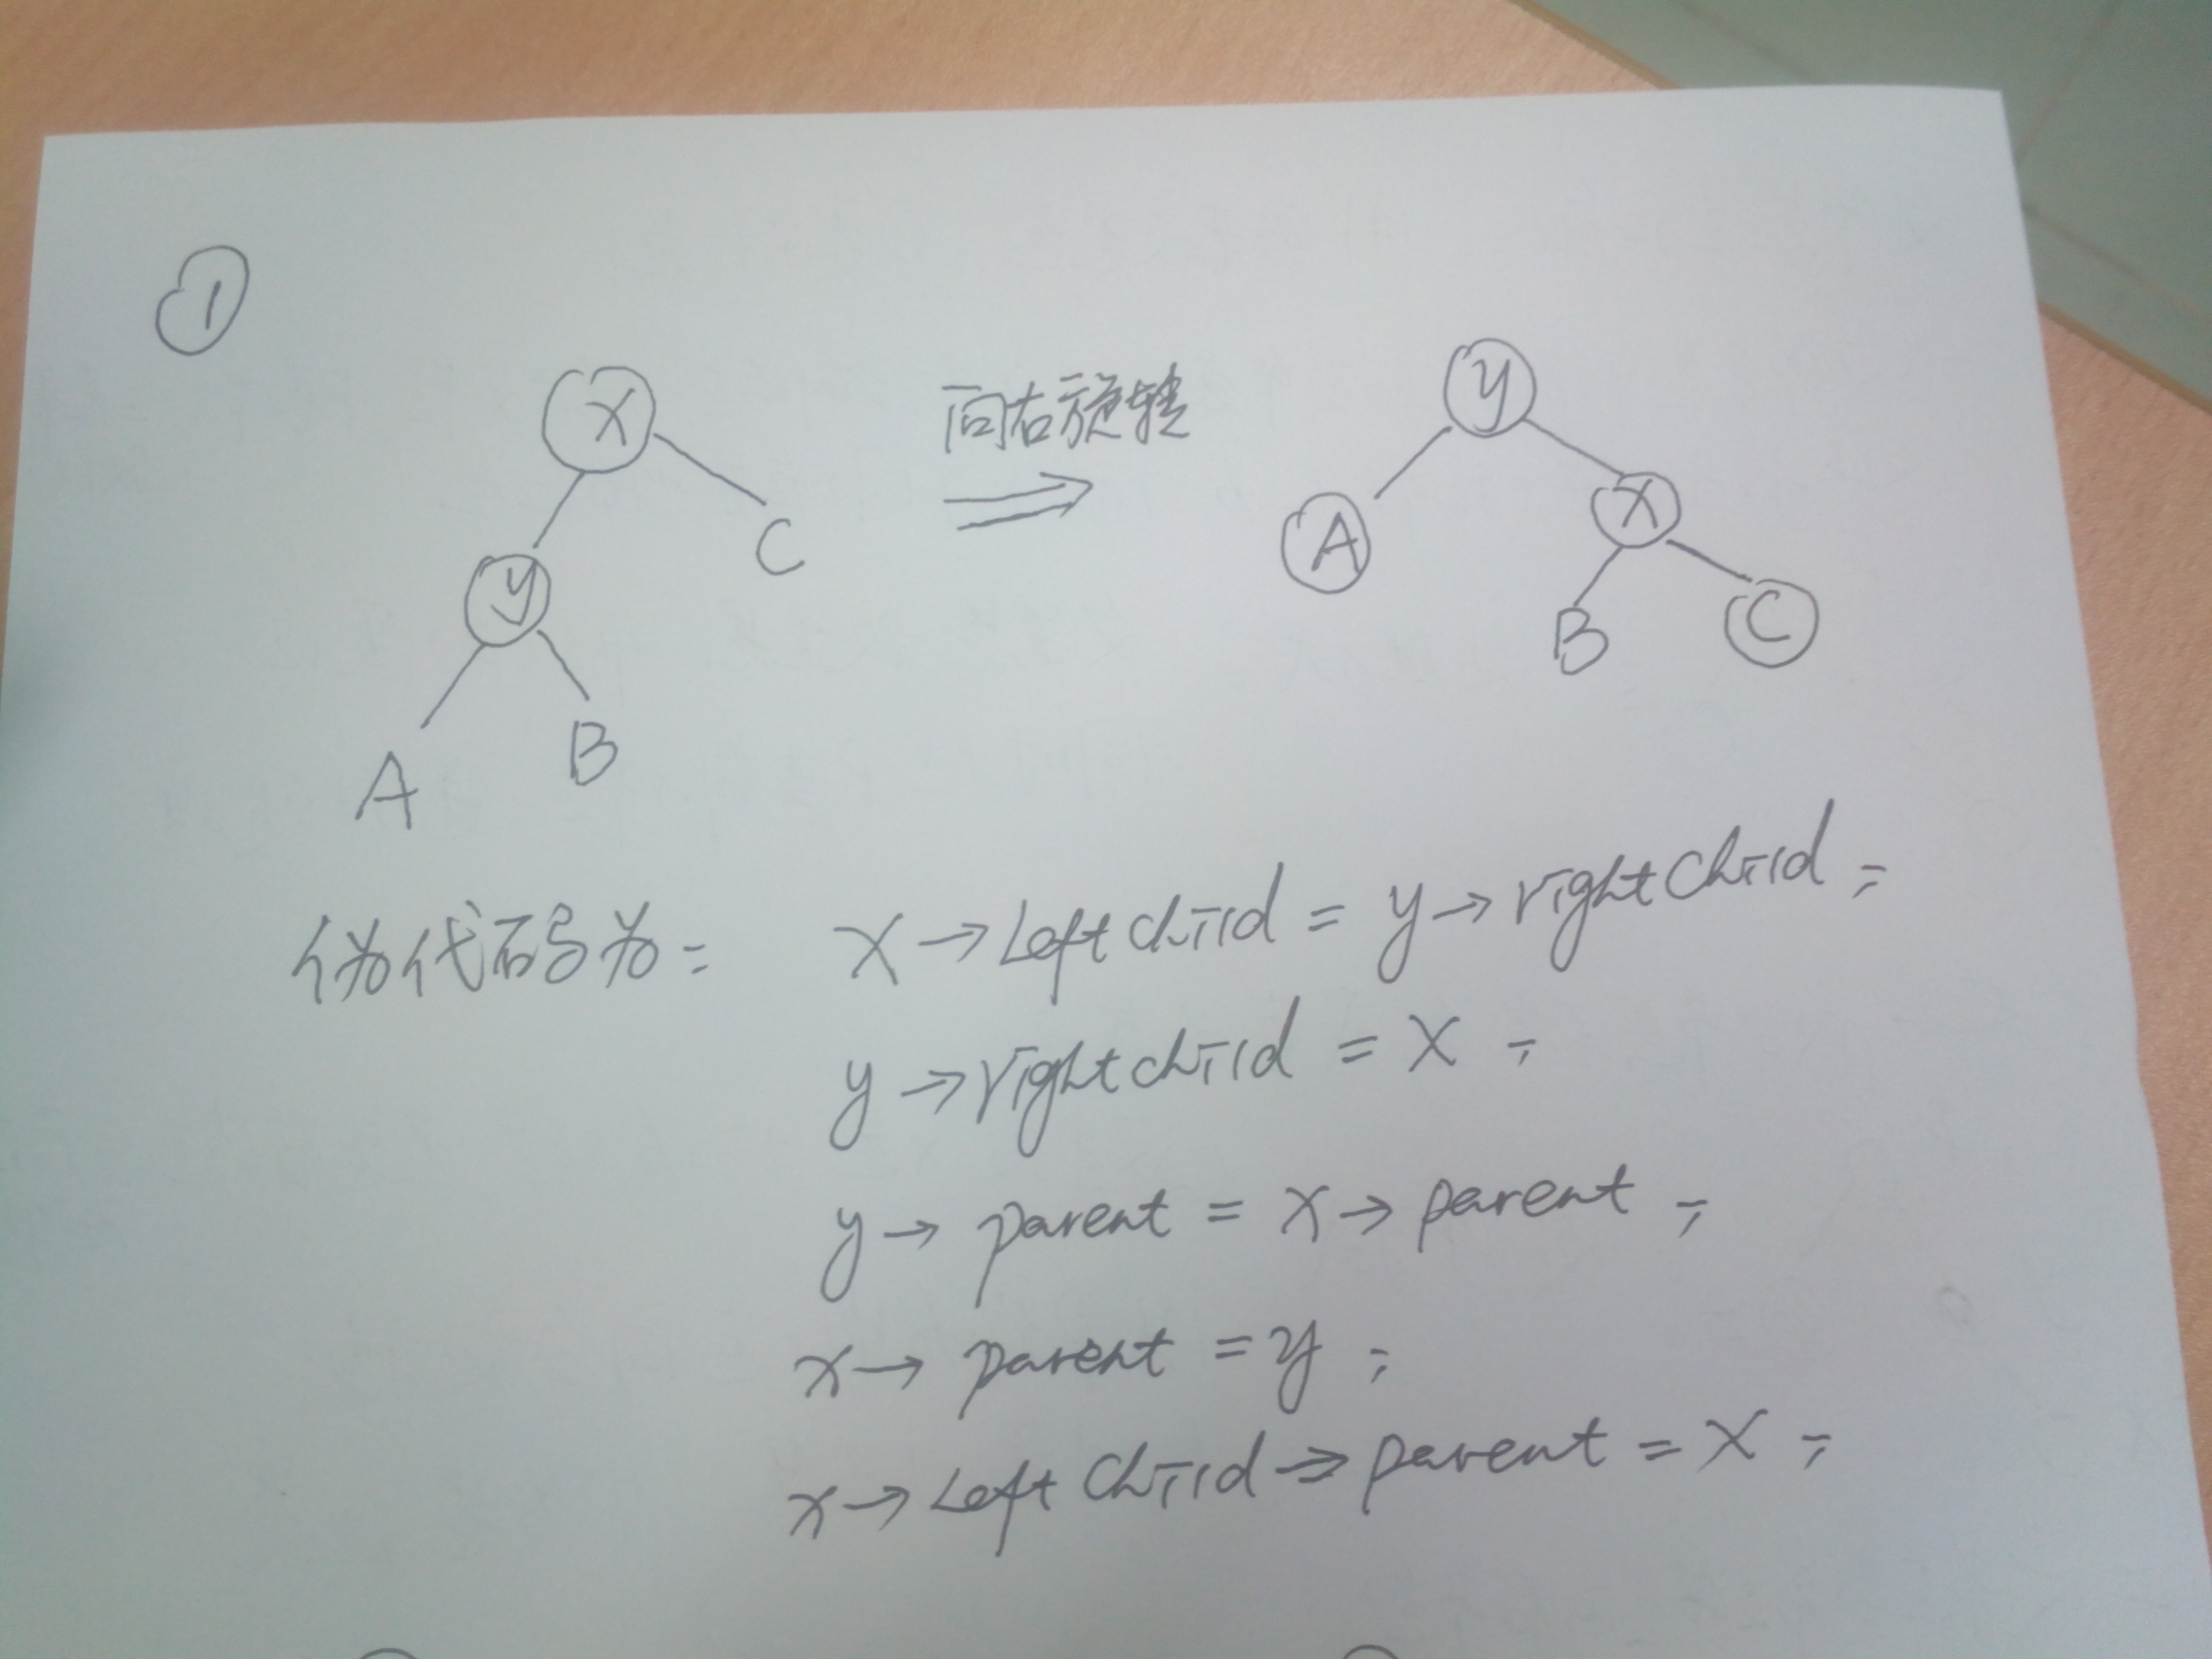 ①
X 向右旋转 y
C A X
y B C
A B
伪代码为: X→Leftchild = y→rightChild;
y→rightchild = X;
y→parent = x→parent;
x→parent = y;
x→LeftChild→parent = X;